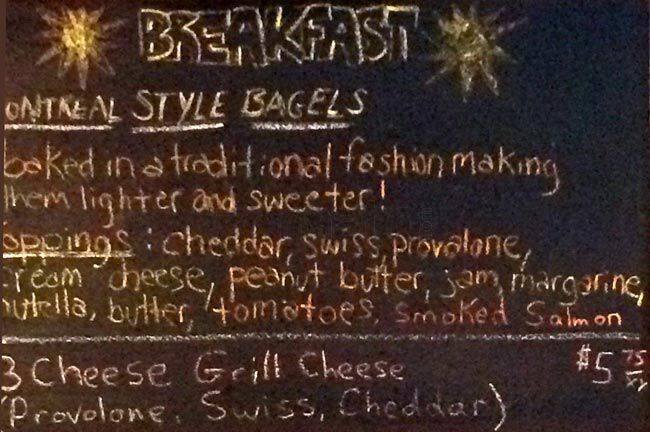 BREAKFAST
ONTREAL STYLE BAGELS
baked in a traditional fashion making
them lighter and sweeter!
oppings: cheddar, swiss, provalone,
cream cheese, peanut butter, jam, margarine,
nutella, butter, tomatoes, smoked Salmon
3 Cheese Grill Cheese $5 75
(Provolone, Swiss, Cheddar)